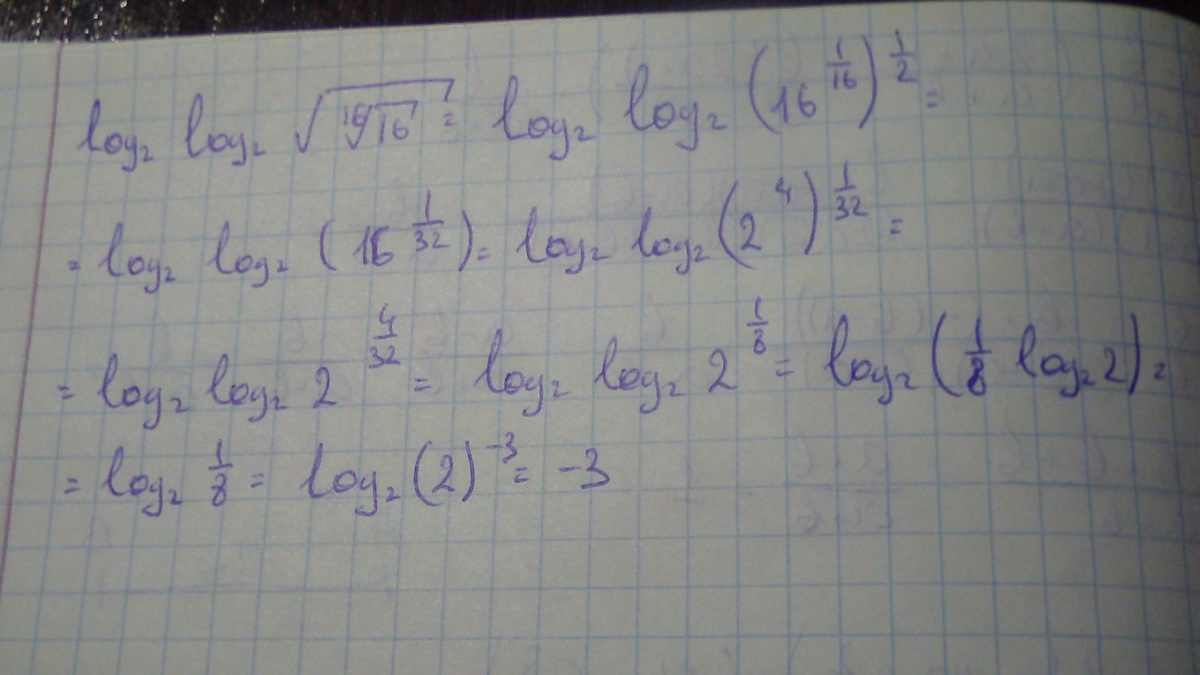 log₂ log₂ √(¹⁶√16) = log₂ log₂ (16^(1/16))^(1/2) =
= log₂ log₂ (16^(1/32)) = log₂ log₂ (2^4)^(1/32) =
= log₂ log₂ 2^(4/32) = log₂ log₂ 2^(1/8) = log₂ (1/8 log₂ 2) =
= log₂ 1/8 = log₂ (2)^(-3) = -3